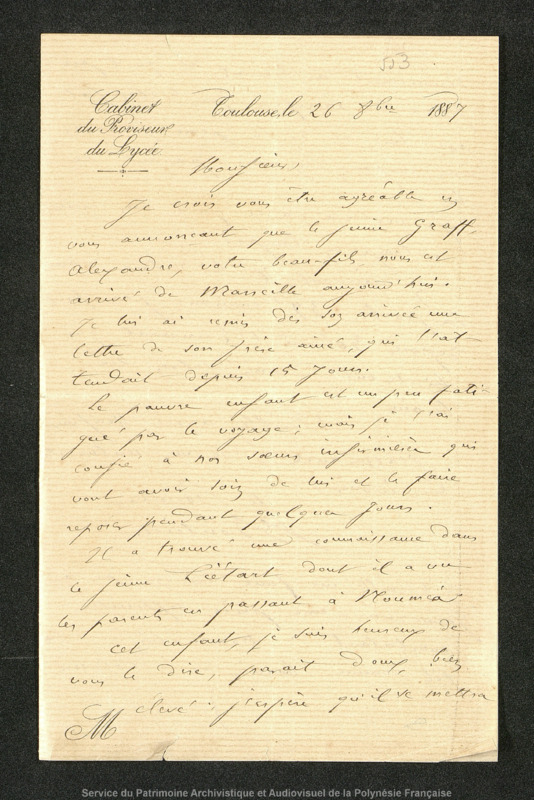 553
Cabinet
du Proviseur
du Lycée
Toulouse, le 26 8bre 1887
Monsieur,
Je crois vous être agréable en
vous annonçant que le jeune Graff,
Alexandre, votre beau-fils nous est
arrivé de Marseille aujourd'hui.
Je lui ai remis dès son arrivée une
lettre de son frère aîné, qui l'at
tendait depuis 15 jours.
Le pauvre enfant est un peu fati-
gué par le voyage ; mais je l'ai
confié à nos sœurs infirmières qui
vont avoir soin de lui et le faire
reposer pendant quelques jours.
Il a trouvé une connaissance dans
le jeune dont il a vu
les parents en passant à Nouméa
cet enfant, je suis heureux de
vous le dire, parait doux, bien
élevé ; j'espère qu'il se mettra
M
Service du Patrimoine Archivistique et Audiovisuel de la Polynésie Française